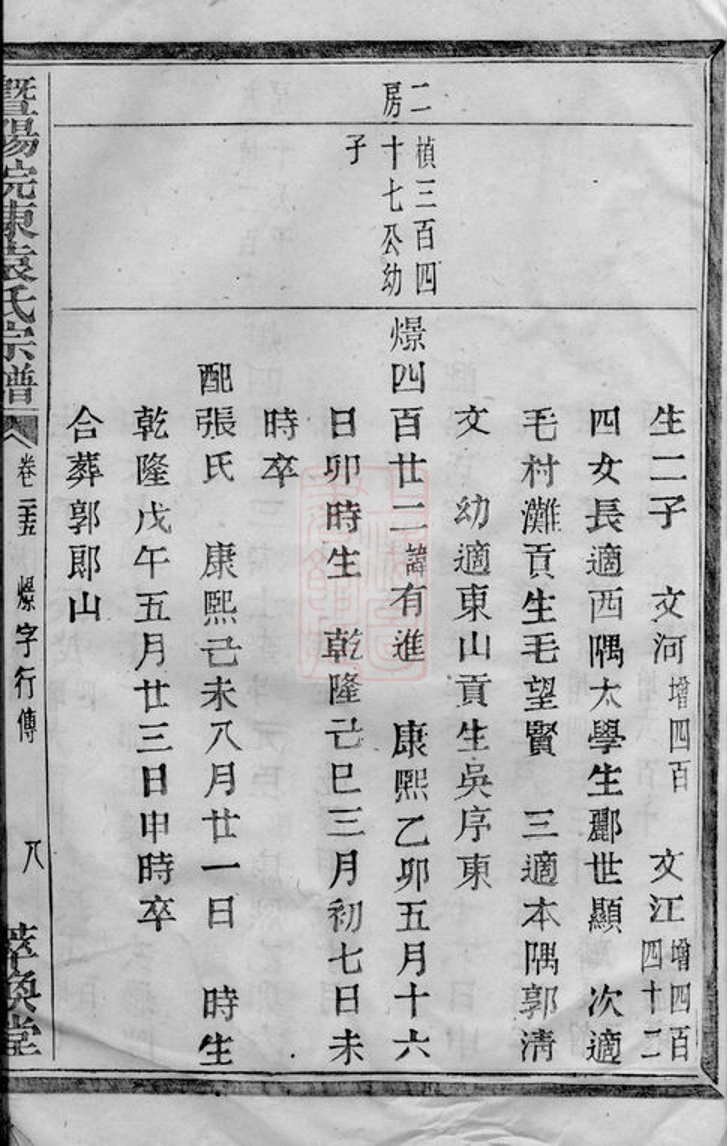 二
房
楨三百四
十七公幼
子
生二子　文河增四百　文江增四百四十二
四女長適西隅太學生酈世顯　次適
毛村灘貢生毛望賢　三適本隅郭清
文　幼適東山貢生吳序東
爆四百廿二諱有進　康熙乙卯五月十六
日卯時生　乾隆己巳三月初七日未
時卒
配張氏　康熙己未八月廿一日　時生
乾隆戊午五月廿三日申時卒
合葬郭郎山
暨陽浣東袁氏宗譜
卷二十五　爆字行傳　八　萃渙堂